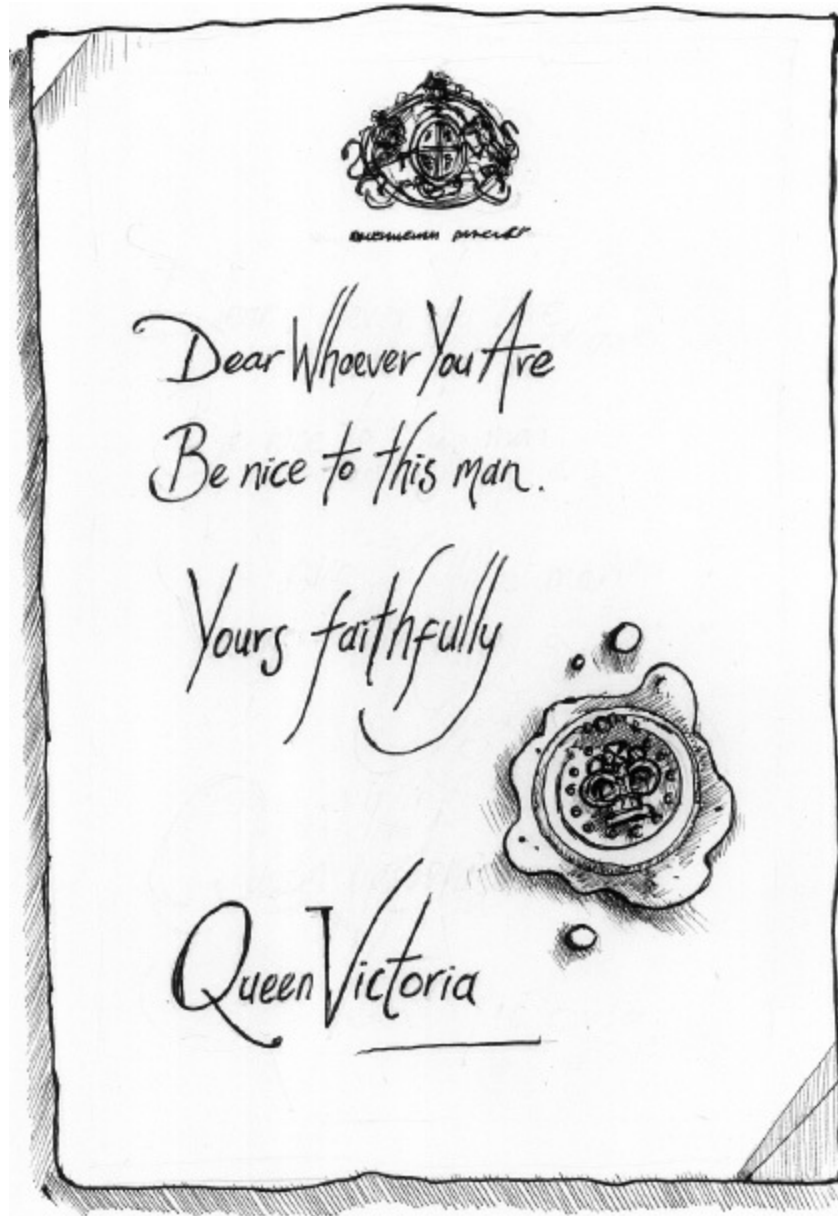 Dear Whoever You Are
Be nice to this man.
Yours faithfully
Queen Victoria